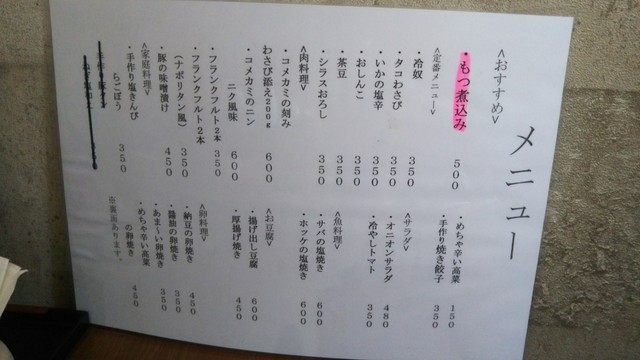 メニュー
<おすすめ>
・もつ煮込み 500
<定番メニュー>
・冷奴 350
・タコわさび 350
・いかの塩辛 350
・おしんこ 350
・茶豆 350
・シラスおろし 350
<肉料理>
・コメカミの刻み
わさび添え200g 600
・コメカミのニン
ニク風味 600
・フランクフルト2本 350
・フランクフルト2本
(ナポリタン風) 350
・豚の味噌漬け 450
<家庭料理>
・手作り塩きんぴ
らごぼう 350
・めちゃ辛い高菜 150
・手作り焼き餃子 350
<サラダ>
・オニオンサラダ 480
・冷やしトマト 350
<魚料理>
・サバの塩焼き 600
・ホッケの塩焼き 600
<お豆腐>
・揚げ出し豆腐 600
・厚揚げ焼き 450
<卵料理>
・納豆の卵焼き 450
・醤油の卵焼き 350
・あま~い卵焼き 350
・めちゃ辛い高菜
の卵焼き 450
※裏面あります。